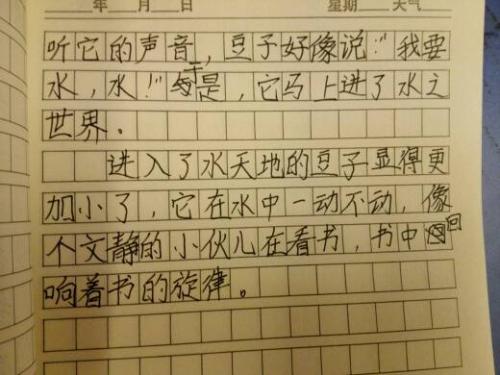 年 月 日 星期 天气
听它的声音，豆子好像说："我要
水，水！"于是，它马上进了水之
世界。
进入了水天地的豆子显得更
加小了，它在水中一动不动，像
个文静的小伙儿在看书，书中回
响着书的旋律。